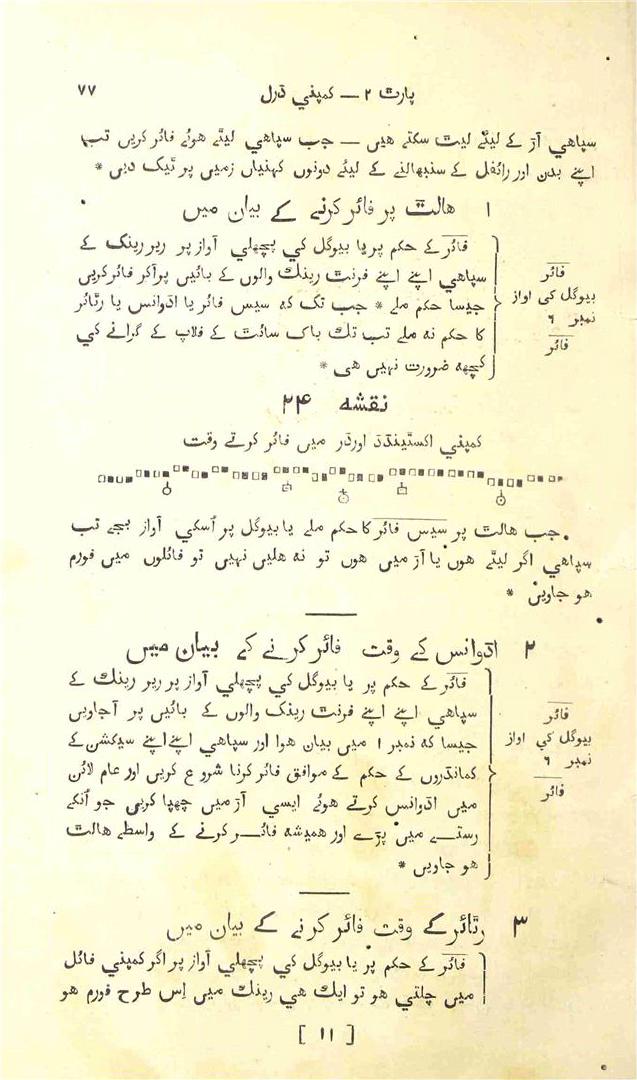 پارٹ ۲ — کمپني ڈرل ۷۷
سپاهي آڑ کے لیئے لیٹ سکتے هیں — جب سپاهي لیٹے هوئے فائر کریں تب
اپنے بدن اور رائفل کے سنبھالنے کے لیئے دونوں کہنیاں زمین پر ٹیک دیں *
۱ هالٹ پر فائر کرنے کے بیان میں
فائر
بیوگل کی اواز
نمبر ۶
فائر
فائر کے حکم پر یا بیوگل کي پچھلي آواز پر ریر رینک کے
سپاهي اپنے اپنے فرنٹ رینک والوں کے بائیں پر آکر فائر کریں
جیسا حکم ملے * جب تک که سیس فائر یا اڈوانس یا رٹائر
کا حکم نه ملے تب تک باک سائٹ کے فلاپ کے گرانے کي
کچھه ضرورت نہیں هی *
نقشه ۲۴
کمپني اکسٹینڈڈ اورڈر میں فائر کرتے وقت
جب هالٹ پر سیس فائر کا حکم ملے یا بیوگل پر اُسکي آواز بجے تب
سپاهي اگر لیٹے هوں یا آڑ میں هوں تو نه هلیں نہیں تو فائلوں میں فورم
هو جاویں *
۲ اڈوانس کے وقت فائر کرنے کے بیان میں
فائر
بیوگل کي اواز
نمبر ۶
فائر
فائر کے حکم پر یا بیوگل کي پچھلي آواز پر ریر رینک کے
سپاهي اپنے اپنے فرنٹ رینک والوں کے بائیں پر آجاویں
جیسا که نمبر ۱ میں بیان هوا اور سپاهي اپنے اپنے سیکشن کے
کمانڈروں کے حکم کے موافق فائر کرنا شروع کریں اور عام لائن
میں اڈوانس کرتے هوئے ایسي آڑ میں چھپا کریں جو اُنکے
رستے میں پڑے اور همیشه فائر کرنے کے واسطے هالٹ
هو جاویں *
۳ رٹائر کے وقت فائر کرنے کے بیان میں
فائر کے حکم پر یا بیوگل کي پچھلي آواز پر اگر کمپني فائل
میں چلتي هو تو ایك هي رینک میں اِس طرح فورم هو
[ ۱۱ ]